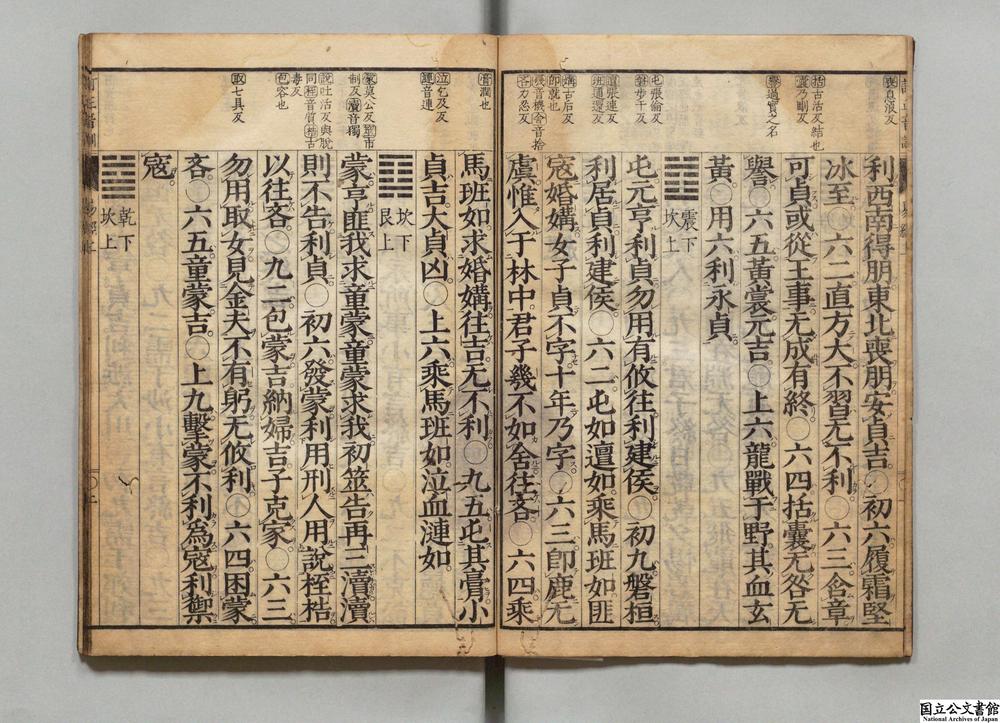 喪息浪反
括古活反結也
囊乃剛反
譽過實之名
屯張倫反
磐步干反
邅張連反
班通還反
媾古后反
卽就也
幾音機舍音捨
吝力忍反
利西南得朋東北喪朋安貞吉○初六履霜堅
冰至○六二直方大不習无不利○六三含章
可貞或從王事无成有終○六四括囊无咎无
譽○六五黃裳元吉○上六龍戰于野其血玄
黃○用六利永貞
震下
坎上
屯元亨利貞勿用有攸往利建侯○初九磐桓
利居貞利建侯○六二屯如邅如乘馬班如匪
寇婚媾女子貞不字十年乃字○六三卽鹿无
虞惟入于林中君子幾不如舍往吝○六四乘
膏潤也
泣乞及反
漣音連
蒙莫公反筮市
制反瀆音獨
說吐活反與脫
同桎音質梏古
毒反
包容也
取七具反
馬班如求婚媾往吉无不利○九五屯其膏小
貞吉大貞凶○上六乘馬班如泣血漣如
坎下
艮上
蒙亨匪我求童蒙童蒙求我初筮告再三瀆瀆
則不告利貞○初六發蒙利用刑人用說桎梏
以往吝○九二包蒙吉納婦吉子克家○六三
勿用取女見金夫不有躬无攸利○六四困蒙
吝○六五童蒙吉○上九擊蒙不利爲寇利禦
寇
乾下
坎上
国立公文書館
National Archives of Japan